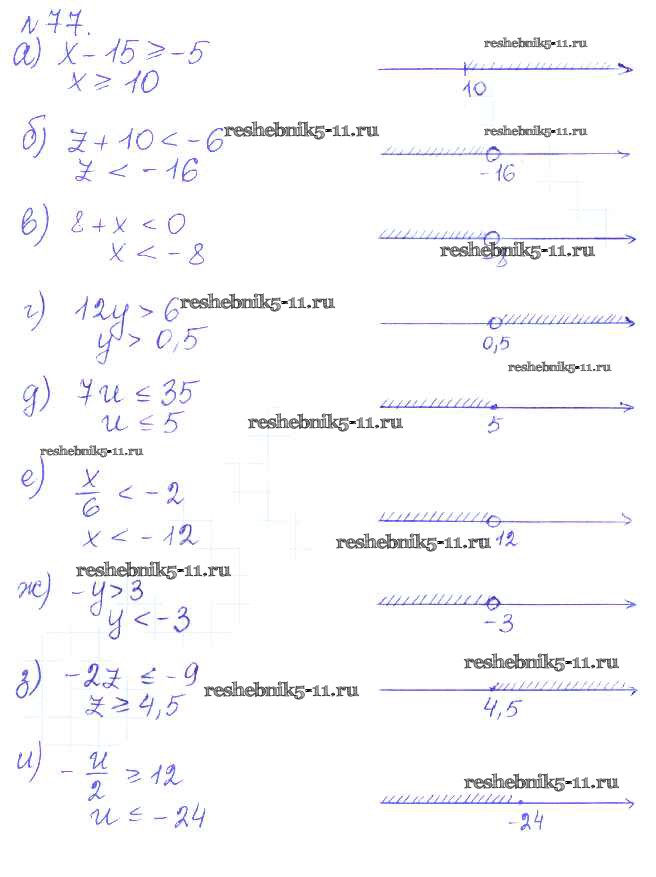 №77.
а) x - 15 ≥ -5
x ≥ 10
reshebnik5-11.ru
10
б) z + 10 < -6
z < -16
reshebnik5-11.ru
reshebnik5-11.ru
-16
в) 8 + x < 0
x < -8
reshebnik5-11.ru
-8
г) 12y > 6
y > 0,5
reshebnik5-11.ru
0,5
reshebnik5-11.ru
д) 7u ≤ 35
u ≤ 5
reshebnik5-11.ru
5
reshebnik5-11.ru
е) x/6 < -2
x < -12
reshebnik5-11.ru
12
reshebnik5-11.ru
ж) -y > 3
y < -3
-3
reshebnik5-11.ru
з) -2z ≤ -9
z ≥ 4,5
reshebnik5-11.ru
4,5
и) - u/2 ≥ 12
u ≤ -24
reshebnik5-11.ru
-24